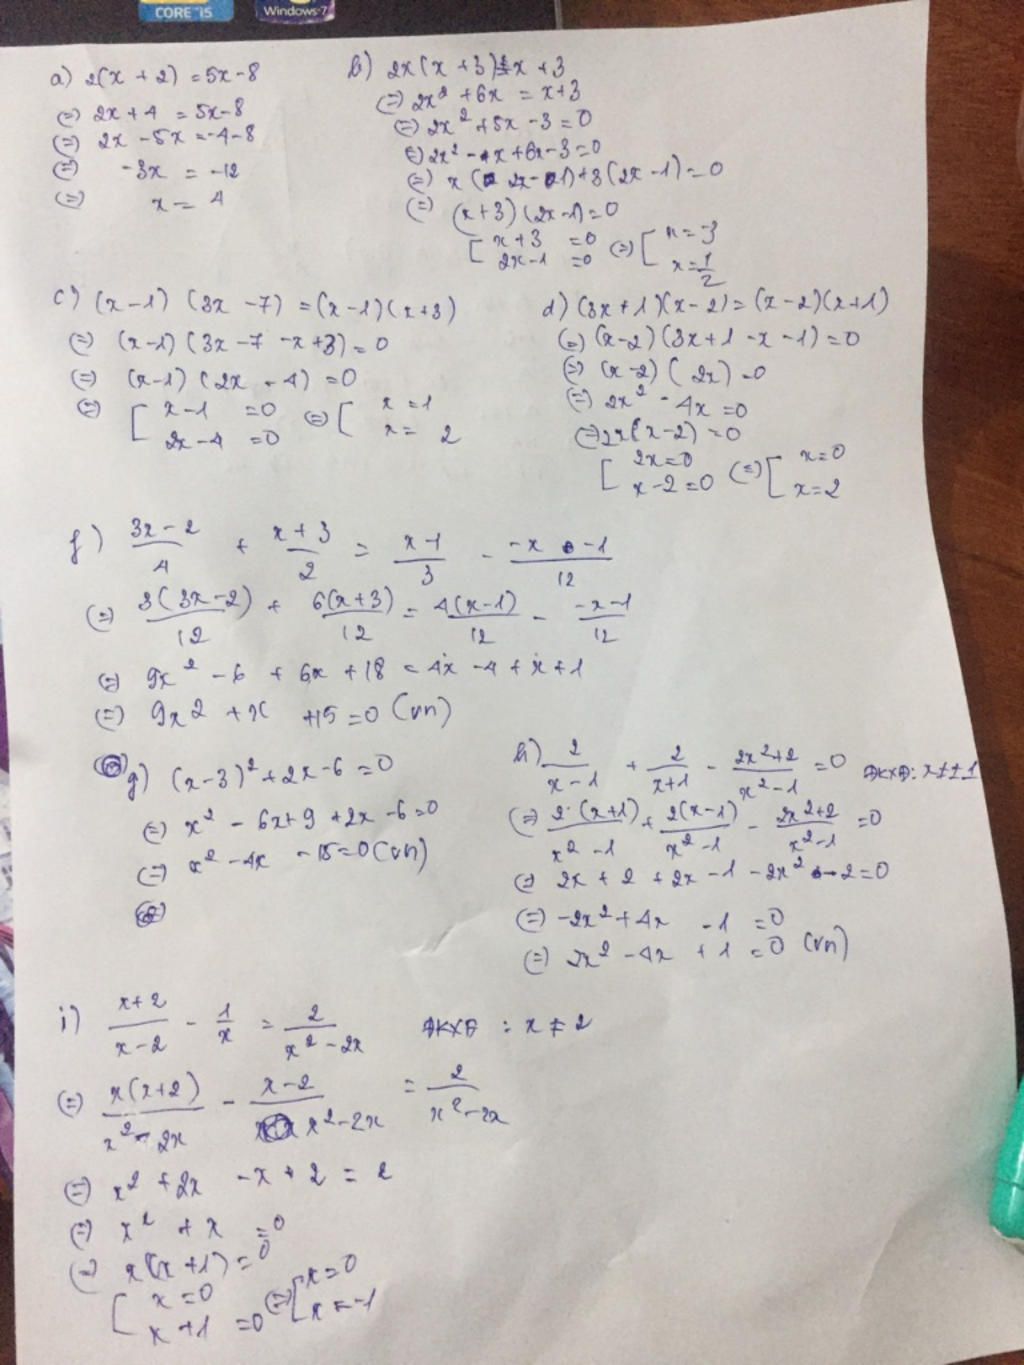 CORE i5
Windows 7
a) 2(x + 2) = 5x - 8
(=) 2x + 4 = 5x - 8
(=) 2x - 5x = -4 - 8
(=) -3x = -12
(=) x = 4
b) 2x(x + 3) = x + 3
(=) 2x² + 6x = x + 3
(=) 2x² + 5x - 3 = 0
(=) 2x² - x + 6x - 3 = 0
(=) x(2x - 1) + 3(2x - 1) = 0
(=) (x + 3)(2x - 1) = 0
[ x + 3 = 0 (=) [ x = -3
2x - 1 = 0 x = 1/2
c) (x - 1) (3x - 7) = (x - 1)(x + 3)
(=) (x - 1) (3x - 7 - x + 3) = 0
(=) (x - 1) (2x - 4) = 0
(=) [ x - 1 = 0 (=) [ x = 1
2x - 4 = 0 x = 2
d) (3x + 1)(x - 2) = (x - 2)(x + 1)
(=) (x - 2)(3x + 1 - x - 1) = 0
(=) (x - 2) (2x) = 0
(=) 2x² - 4x = 0
(=) 2x(x - 2) = 0
[ 2x = 0 (=) [ x = 0
x - 2 = 0 x = 2
f) (3x - 2)/4 + (x + 3)/2 = (x - 1)/3 - (-x - 1)/12
(=) 3(3x - 2)/12 + 6(x + 3)/12 = 4(x - 1)/12 - (-x - 1)/12
(=) 9x² - 6 + 6x + 18 = 4x - 4 + x + 1
(=) 9x² + x + 15 = 0 (vn)
g) (x - 3)² + 2x - 6 = 0
(=) x² - 6x + 9 + 2x - 6 = 0
(=) x² - 4x - 15 = 0 (vn)
h) 2/(x - 1) + 2/(x + 1) - (2x² + 2)/(x² - 1) = 0 ĐKXĐ: x ≠ ± 1
(=) 2·(x + 1)/(x² - 1) + 2(x - 1)/(x² - 1) - (2x² + 2)/(x² - 1) = 0
(=) 2x + 2 + 2x - 1 - 2x² - 2 = 0
(=) -2x² + 4x - 1 = 0
(=) 2x² - 4x + 1 = 0 (vn)
i) (x + 2)/(x - 2) - 1/x = 2/(x² - 2x) ĐKXĐ : x ≠ 2
(=) x(x + 2)/(x² - 2x) - (x - 2)/(x² - 2x) = 2/(x² - 2x)
(=) x² + 2x - x + 2 = 2
(=) x² + x = 0
(=) x(x + 1) = 0
[ x = 0 (=) [ x = 0
x + 1 = 0 x = -1